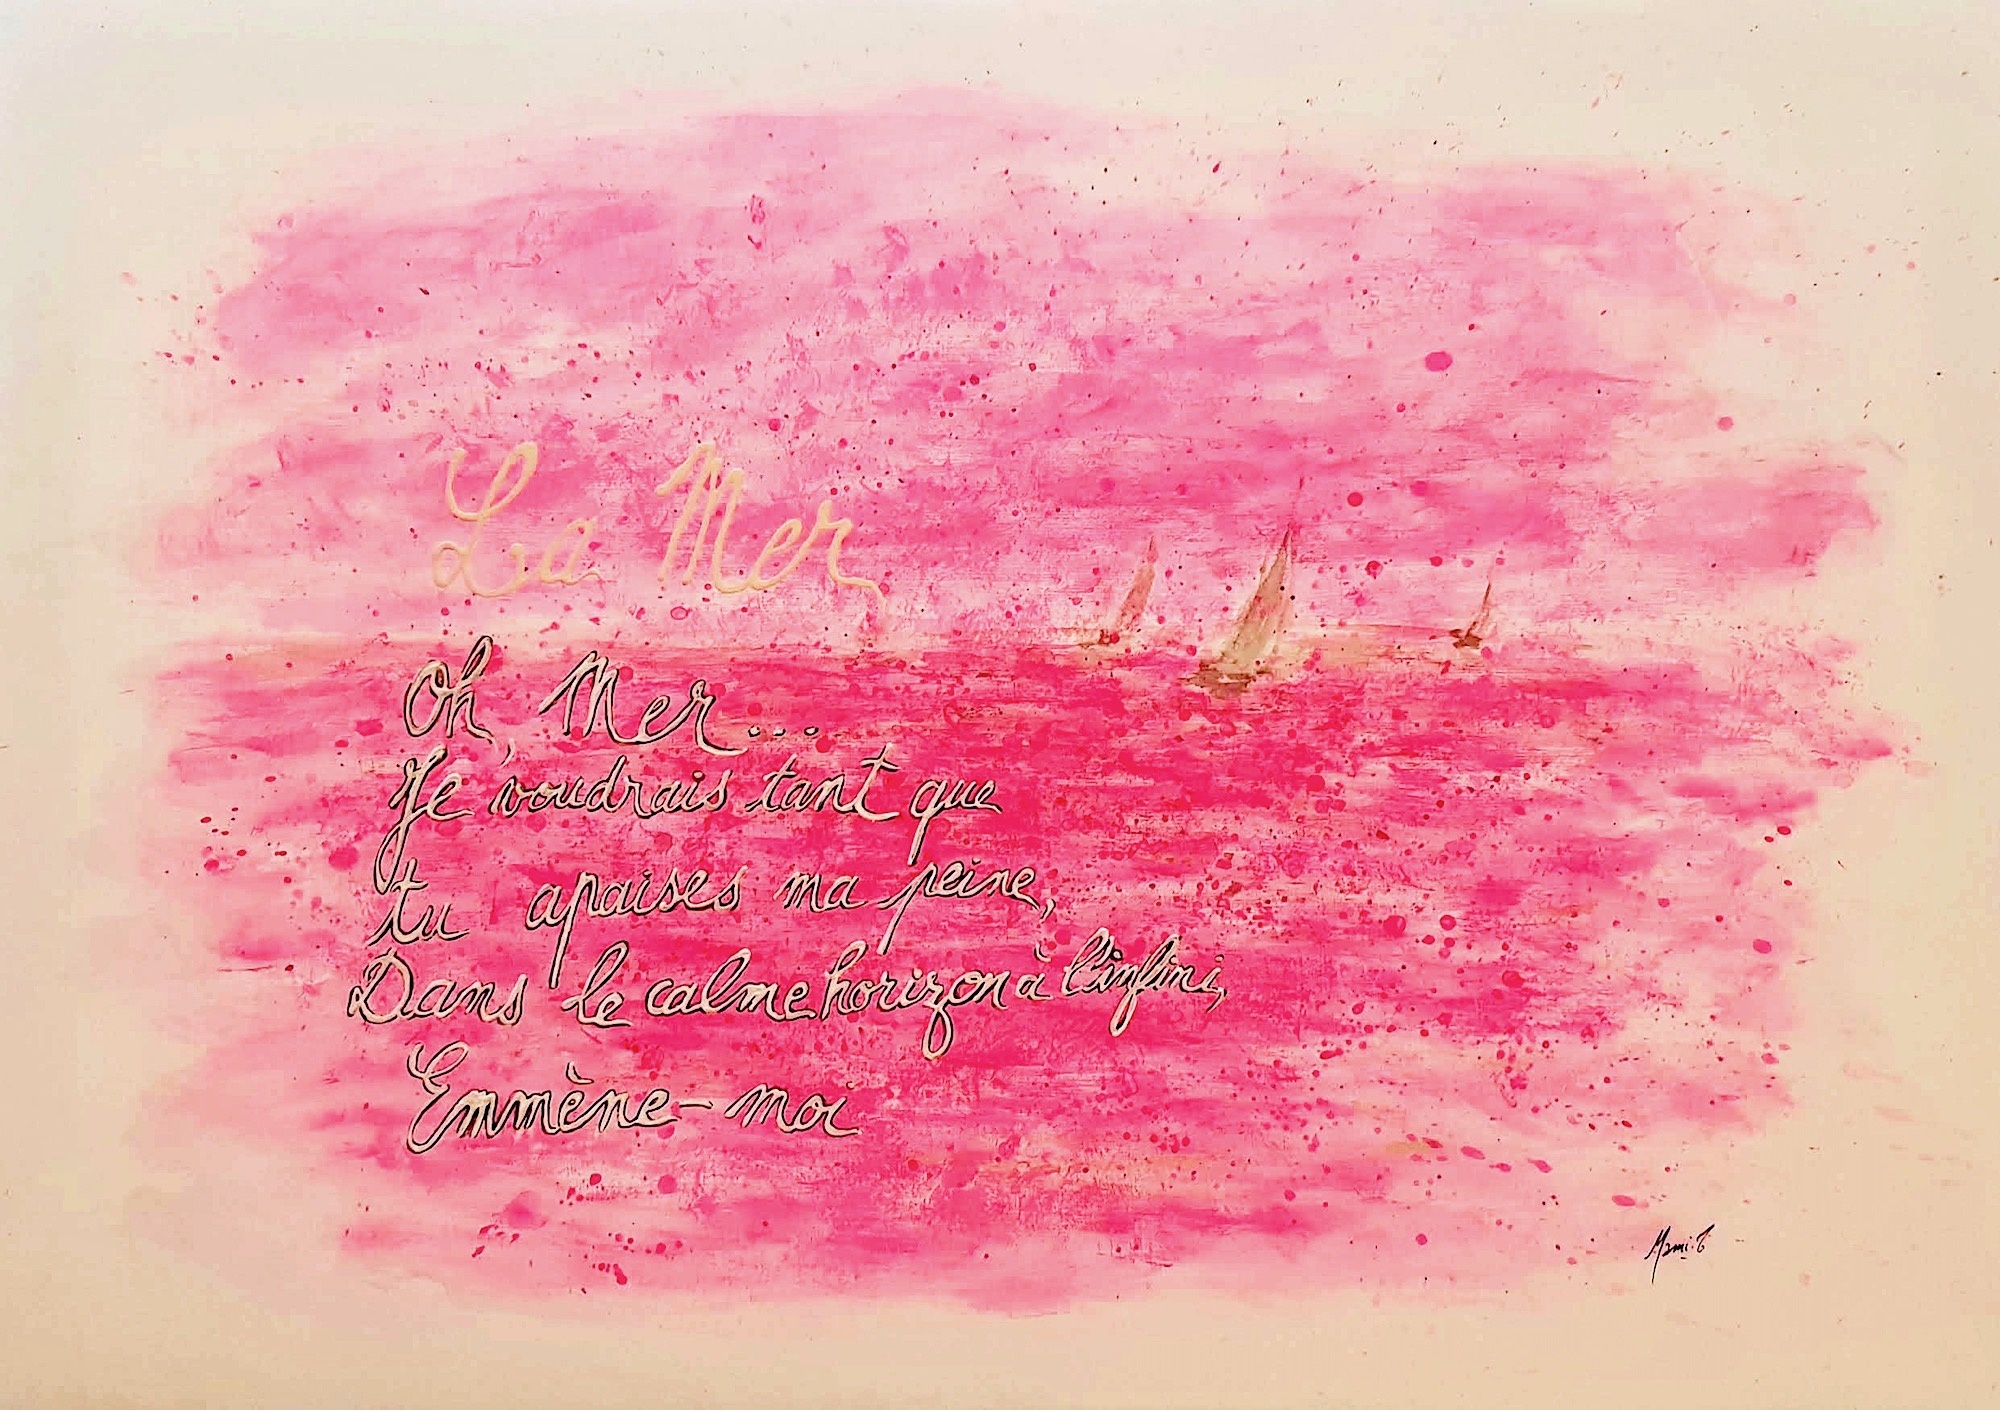 La Mer
Oh, Mer...
Je voudrais tant que
tu apaises ma peine,
Dans le calme horizon à l'infini,
Emmène-moi
Mami.T